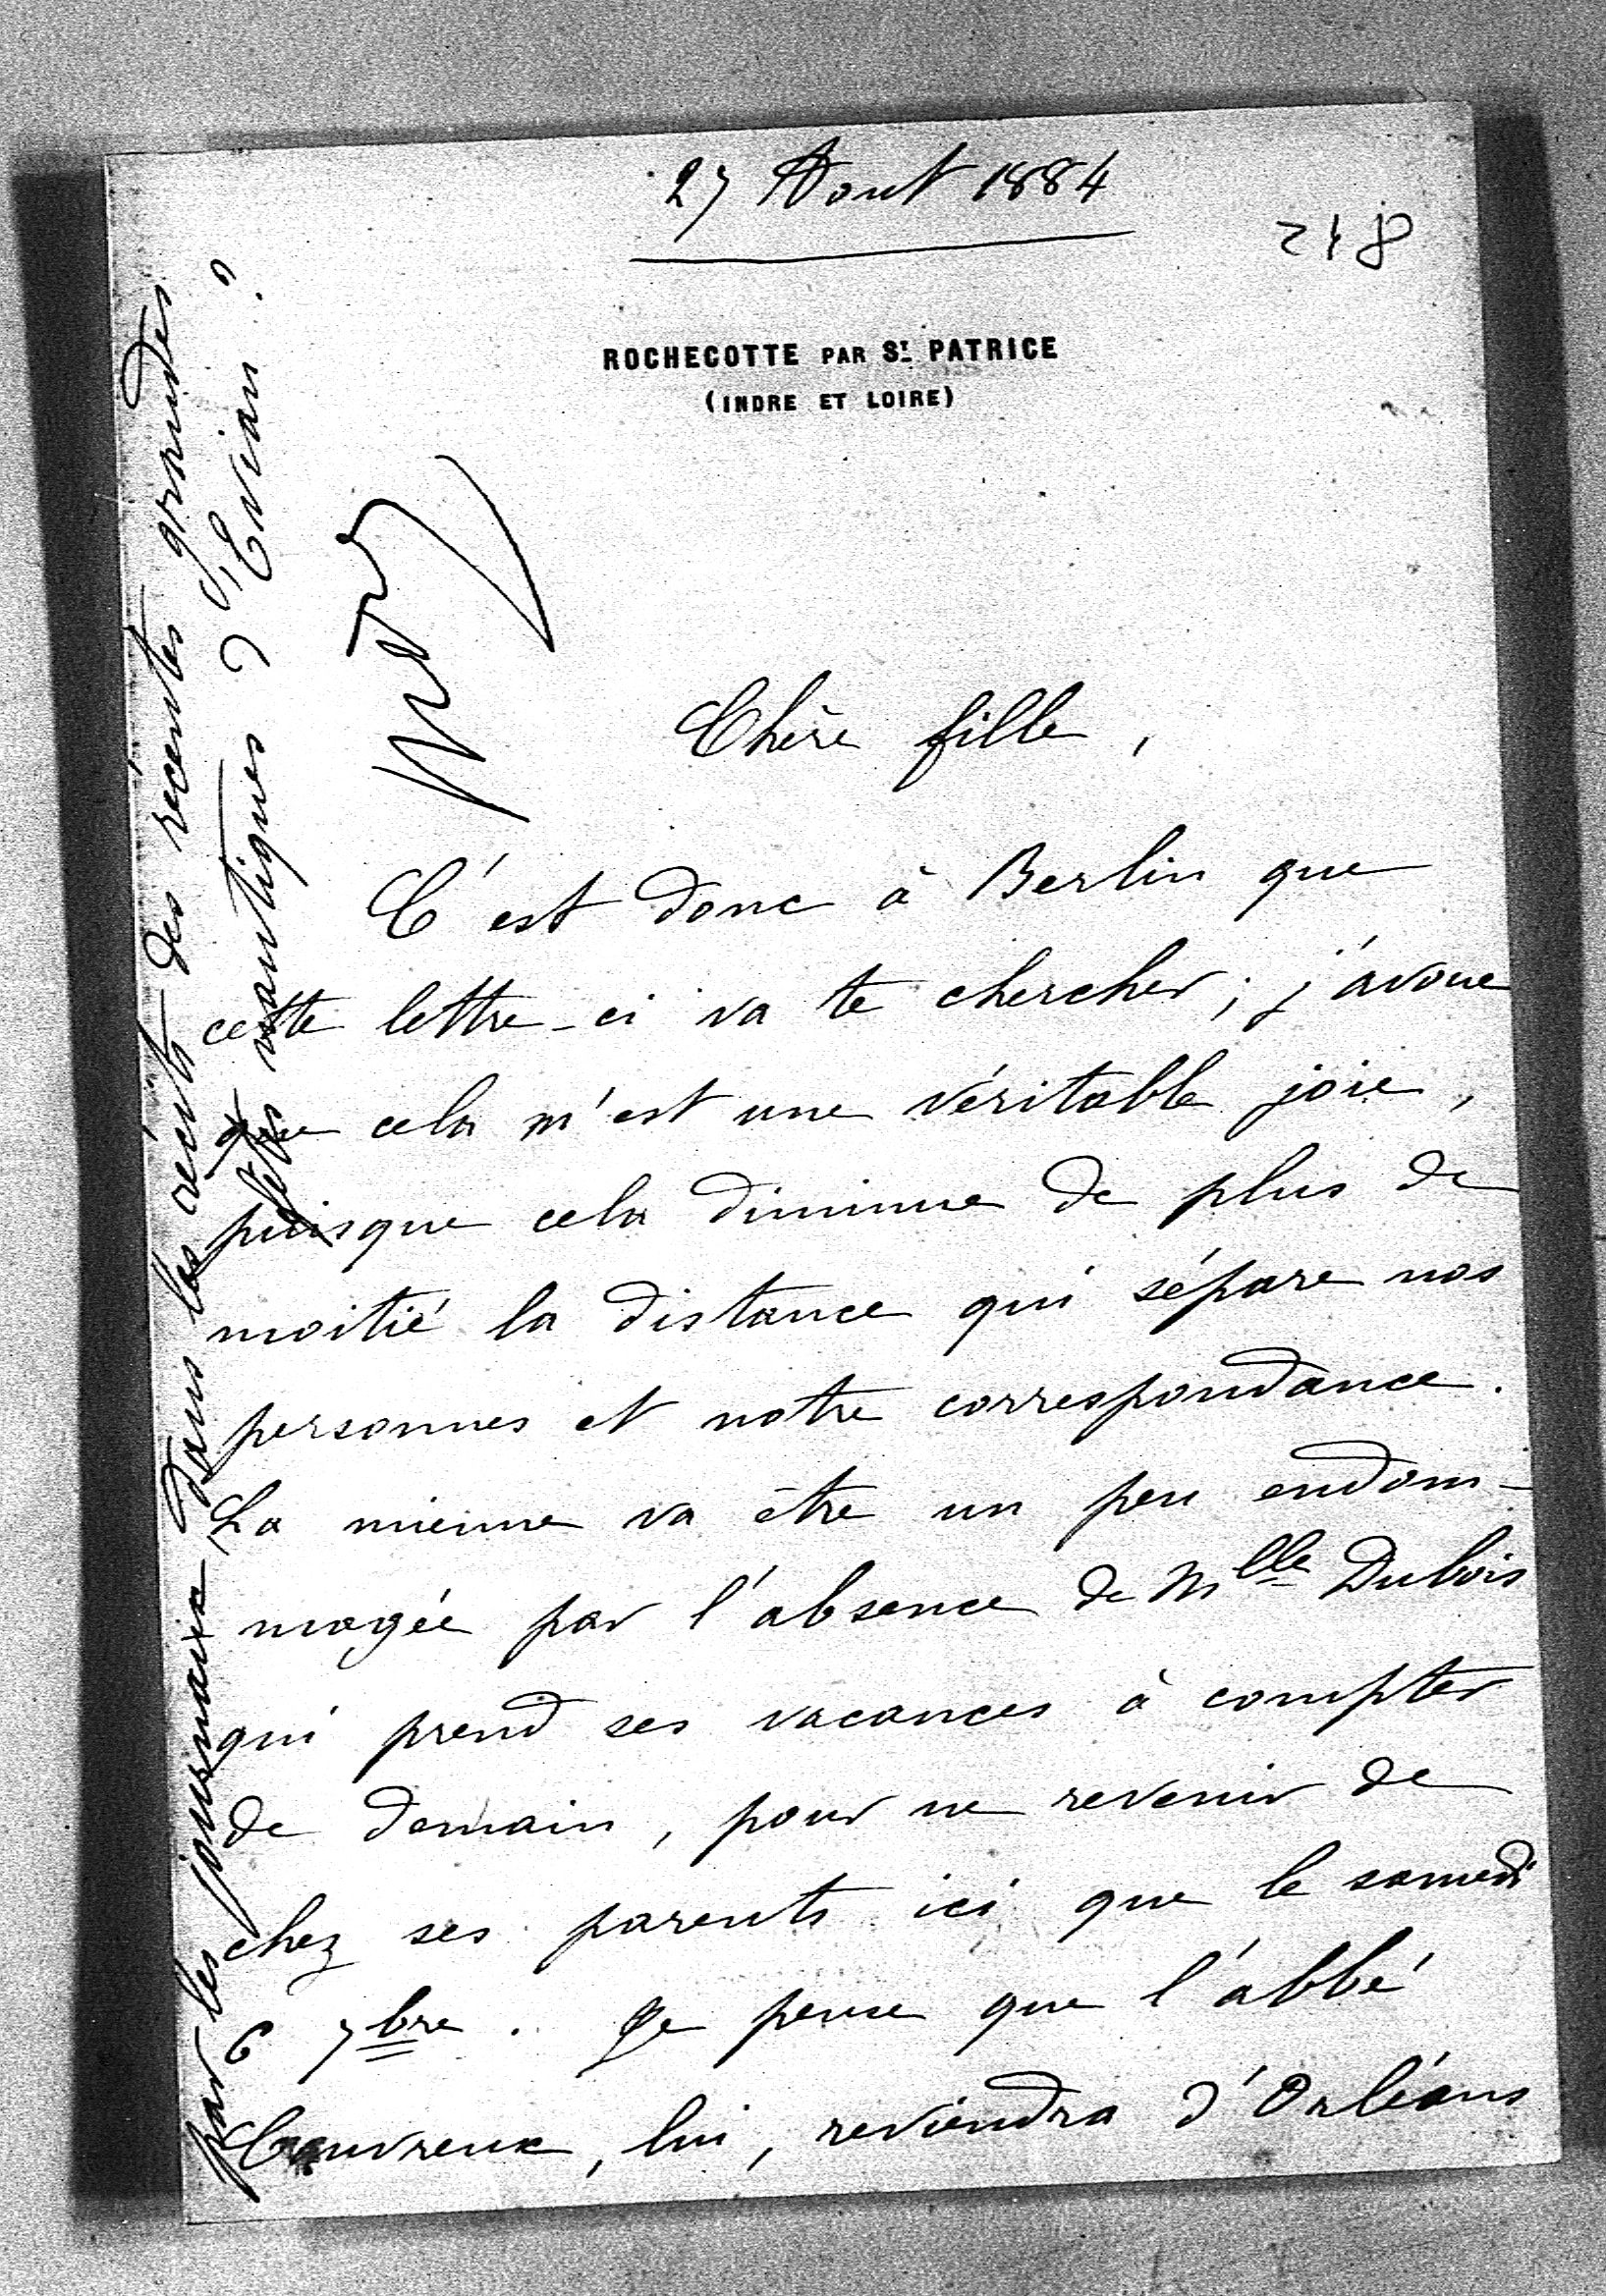 27 Aout 1884
218
ROCHECOTTE PAR St. PATRICE
(INDRE ET LOIRE)
Chère fille,
C'est donc à Berlin que
cette lettre-ci va te chercher; j'avoue
que cela m'est une véritable joie,
puisque cela diminue de plus de
moitié la distance qui sépare nos
personnes et notre correspondance.
La mienne va être un peu endom-
magée par l'absence de Mlle Dubois
qui prend ses vacances à compter
de demain, pour ne revenir de
chez ses parents ici que le samedi
6 7bre. Je pense que l'abbé
Couvreux, lui, reviendra d'Orléans
par les journaux, dans les récits des récentes grandes
fêtes nautiques d'Evian?